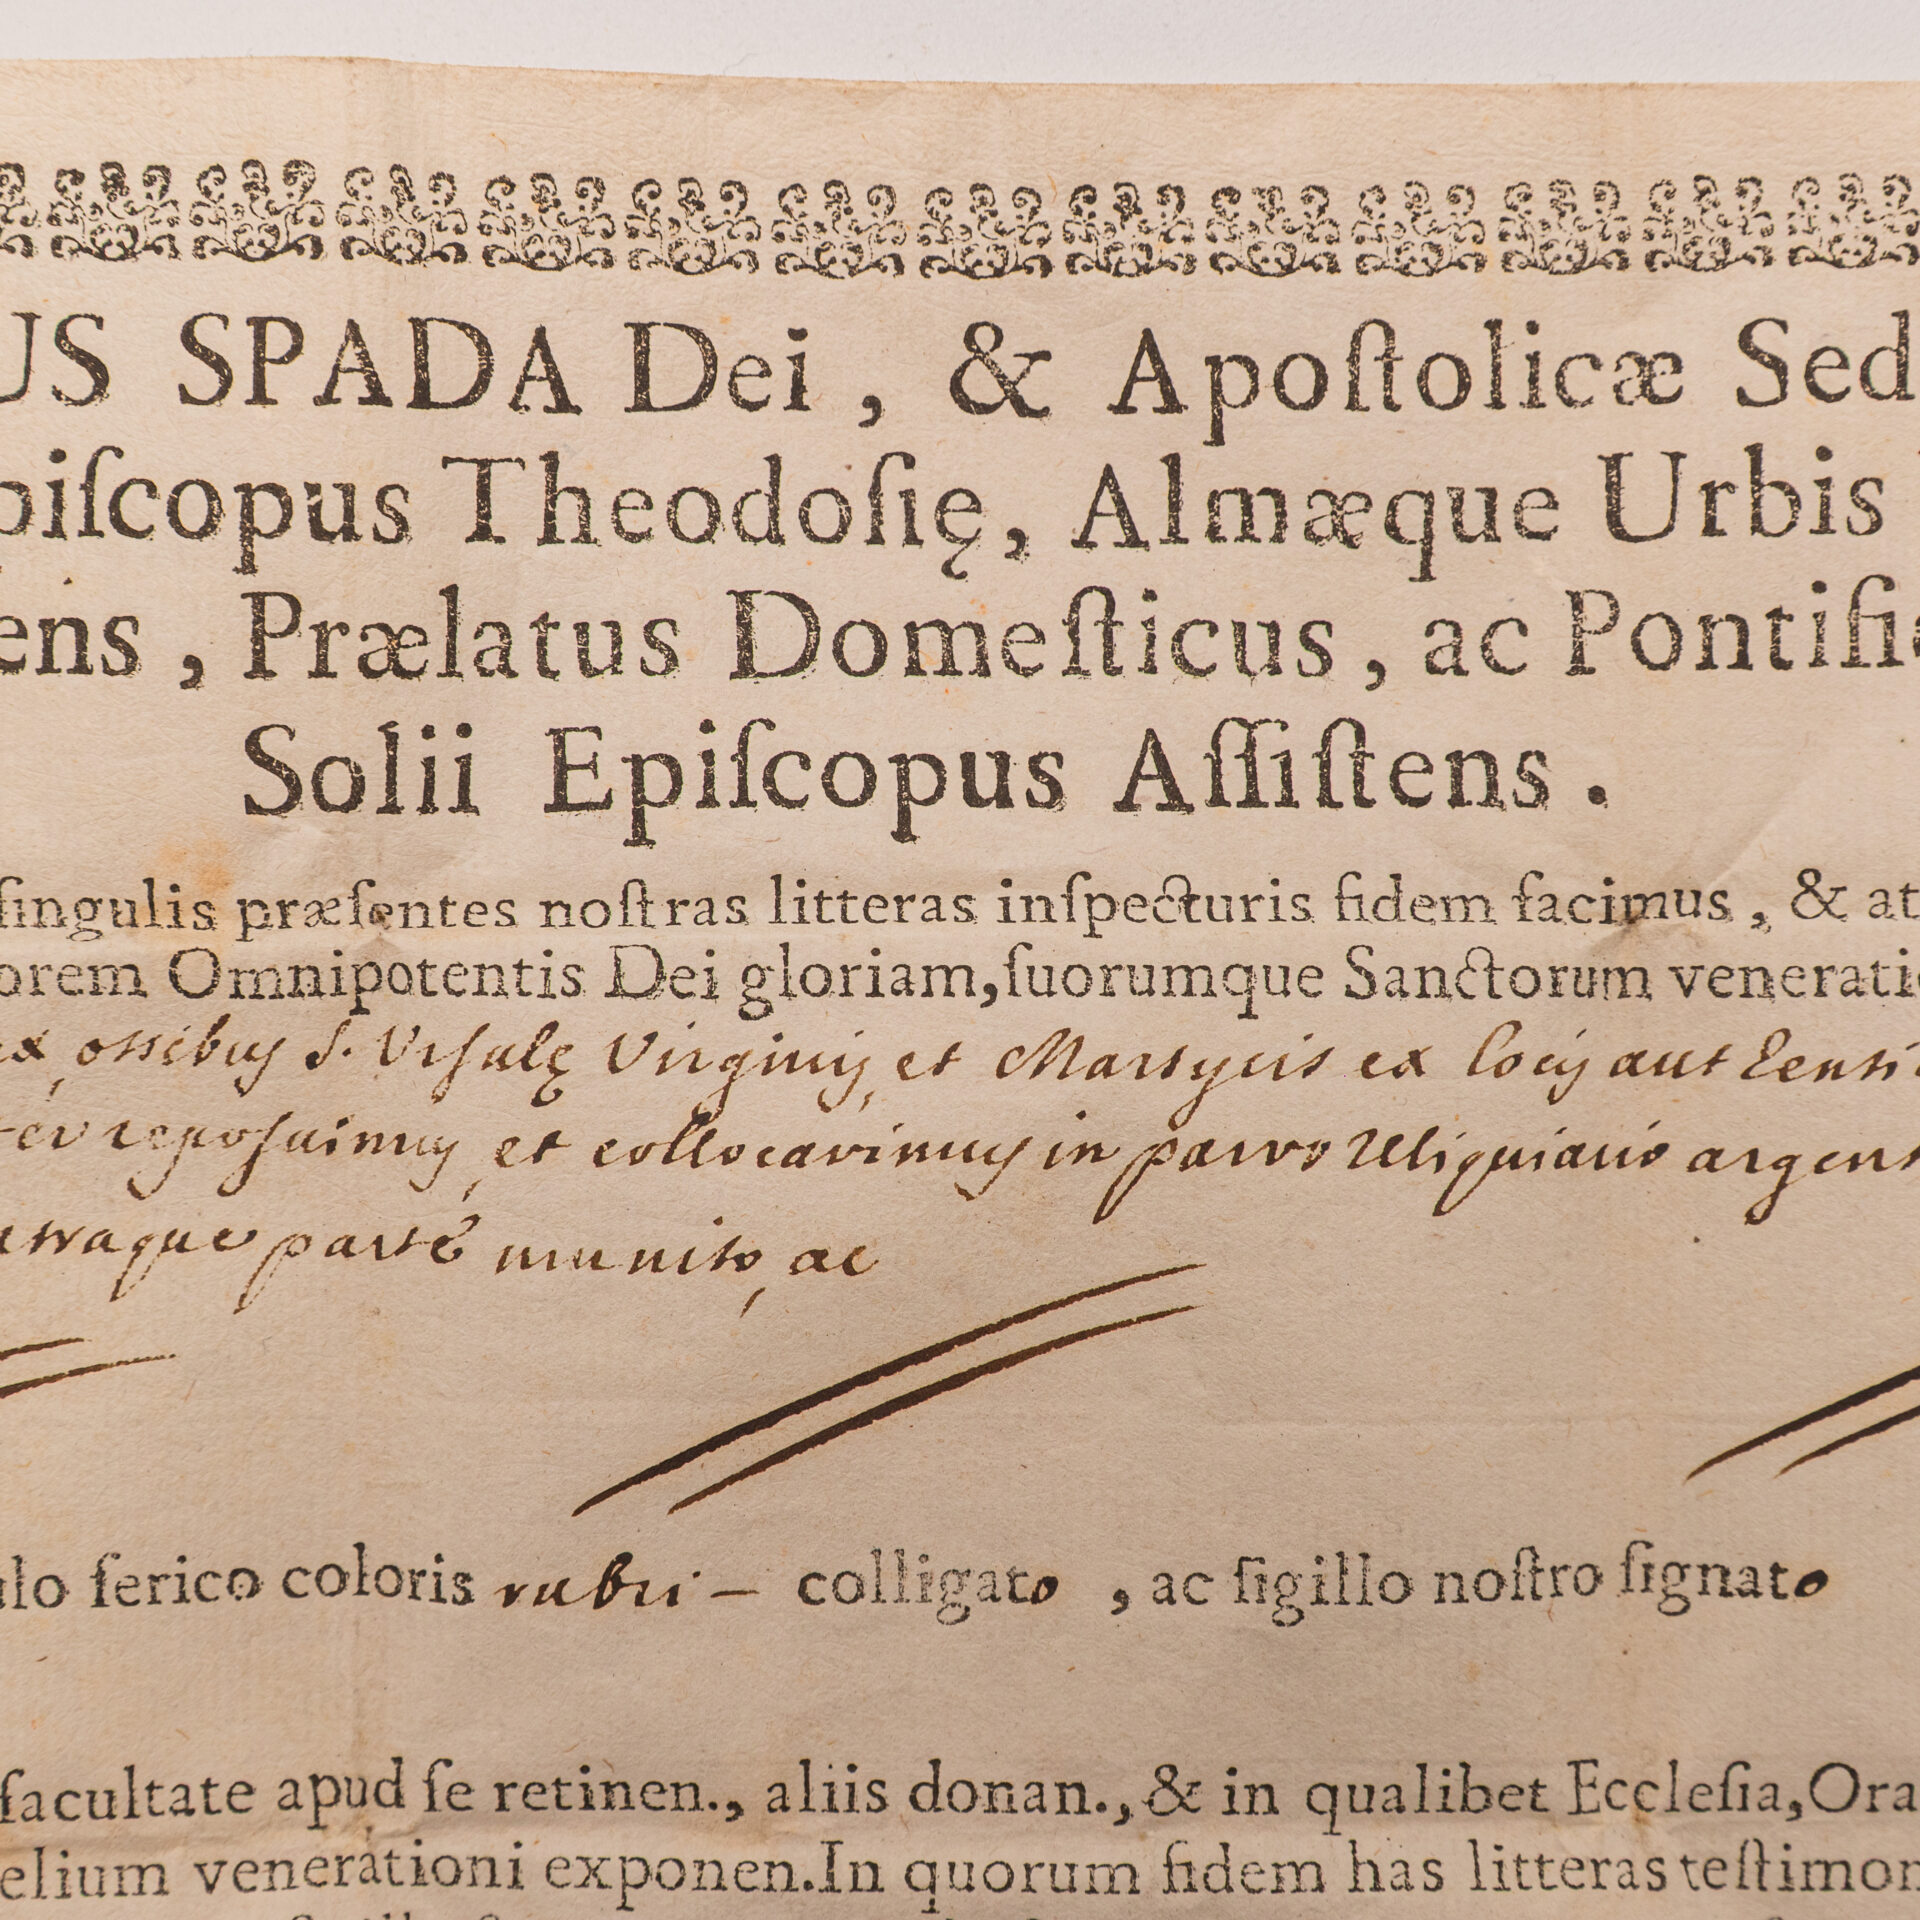 US SPADA Dei, & Apoſtolicæ Sed
piſcopus Theodoſię, Almæque Urbis
ens, Prælatus Domeſticus, ac Pontific
Solii Epiſcopus Aſſiſtens.
ſingulis præſentes noſtras litteras inſpecturis fidem facimus, & at
orem Omnipotentis Dei gloriam, ſuorumque Sanctorum veneratio
ex ossibus S. Vrsulę Virginis, et Martyris ex locis autTenti
ter reposuimus, et collocavimus in parvo Reliquiario argent
utraque parte munito, ac
ulo ſerico coloris rubri – colligato, ac ſigillo noſtro ſignato
facultate apud ſe retinen., aliis donan., & in qualibet Eccleſia, Ora
elium venerationi exponen. In quorum fidem has litteras teſtimon